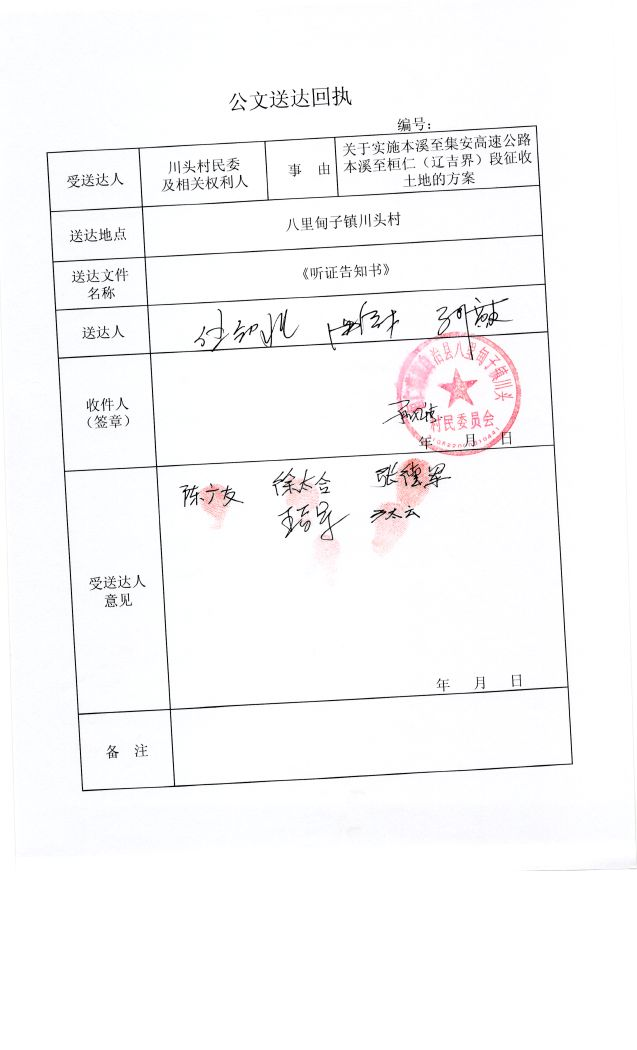 公文送达回执
编号：
受送达人
川头村民委
及相关权利人
事 由
关于实施本溪至集安高速公路
本溪至桓仁（辽吉界）段征收
土地的方案
送达地点
八里甸子镇川头村
送达文件
名称
《听证告知书》
送达人
收件人
（签章）
治县八里甸子镇川头
村民委员会
年 月 日
受送达人
意见
陈广友 徐太合 张德军
年 月 日
备 注